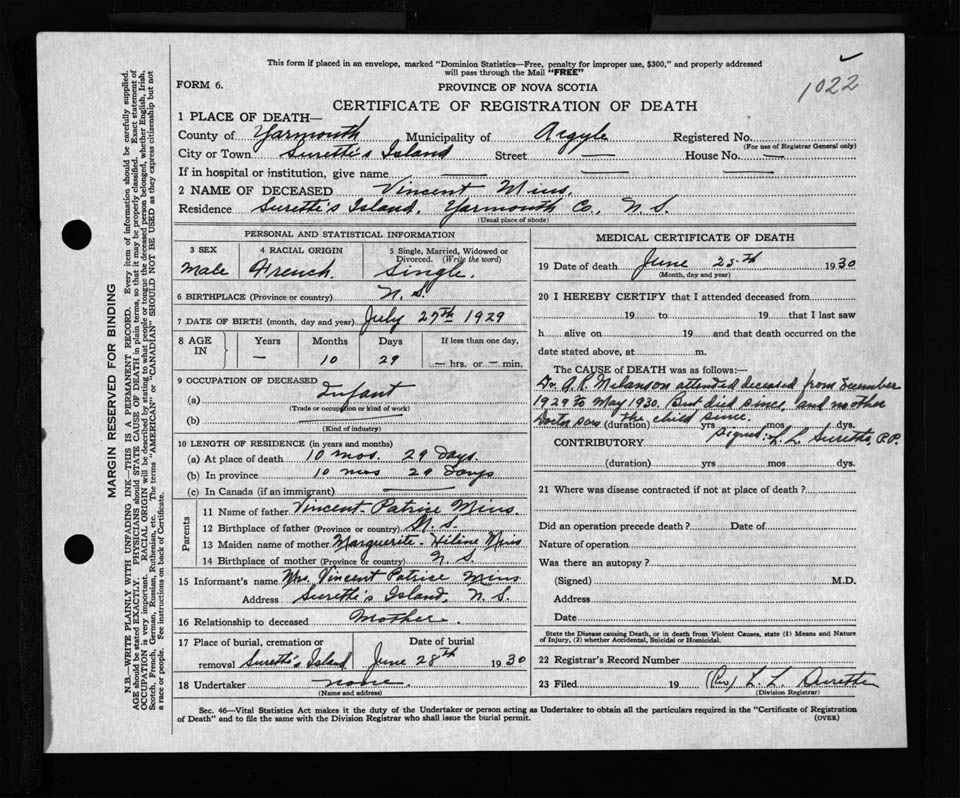 This form if placed in an envelope, marked "Dominion Statistics—Free, penalty for improper use, $300," and properly addressed
will pass through the Mail "FREE"
1022
FORM 6.
PROVINCE OF NOVA SCOTIA
CERTIFICATE OF REGISTRATION OF DEATH
1 PLACE OF DEATH—
County of Yarmouth Municipality of Argyle Registered No.
(For use of Registrar General only)
City or Town Surette's Island Street — House No. —
If in hospital or institution, give name — — —
2 NAME OF DECEASED Vincent Mius.
Residence Surette's Island, Yarmouth Co., N. S.
(Usual place of abode)
PERSONAL AND STATISTICAL INFORMATION
3 SEX 4 RACIAL ORIGIN 5 Single, Married, Widowed or
Divorced. (Write the word)
Male French. Single.
6 BIRTHPLACE (Province or country) N. S.
7 DATE OF BIRTH (month, day and year) July 27th 1929
8 AGE IN Years Months Days If less than one day,
— 10 29 — hrs. or — min.
9 OCCUPATION OF DECEASED
(a) Infant
(Trade or occupation or kind of work)
(b) —
(Kind of industry)
10 LENGTH OF RESIDENCE (in years and months)
(a) At place of death 10 mos. 29 Days.
(b) In province 10 mos 29 Days
(c) In Canada (if an immigrant) —
Parents
11 Name of father Vincent Patrice Mius.
12 Birthplace of father (Province or country) N. S.
13 Maiden name of mother Marguerite-Hélène Mius
14 Birthplace of mother (Province or country) N. S.
15 Informant's name Mrs. Vincent Patrice Mius
Address Surette's Island, N. S.
16 Relationship to deceased Mother.
17 Place of burial, cremation or Date of burial
removal Surette's Island June 28th 1930
18 Undertaker none.
(Name and address)
MEDICAL CERTIFICATE OF DEATH
19 Date of death June 25th 1930
(Month, day and year)
20 I HEREBY CERTIFY that I attended deceased from
19 to 19 that I last saw
h alive on 19 and that death occurred on the
date stated above, at m.
The CAUSE of DEATH was as follows:—
Dr. A. P. Melanson attended deceased from
1929 to May 1930. But died since, and mother
Doctor saw the child since.
(duration) yrs mos dys.
Signed: L. L. Surette, P.P.
CONTRIBUTORY
(duration) yrs mos dys.
21 Where was disease contracted if not at place of death?
Did an operation precede death? Date of
Nature of operation
Was there an autopsy?
(Signed) M.D.
Address
Date
State the Disease causing Death, or in death from Violent Causes, state (1) Means and Nature
of Injury, (2) whether Accidental, Suicidal or Homicidal.
22 Registrar's Record Number
23 Filed 19 (Rev) L. L. Surette
(Division Registrar)
Sec. 46—Vital Statistics Act makes it the duty of the Undertaker or person acting as Undertaker to obtain all the particulars required in the "Certificate of Registration
of Death" and to file the same with the Division Registrar who shall issue the burial permit.
(OVER)
MARGIN RESERVED FOR BINDING
N.B.—WRITE PLAINLY WITH UNFADING INK—THIS IS A PERMANENT RECORD. Every item of information should be carefully supplied.
AGE should be stated EXACTLY. PHYSICIANS should STATE CAUSE OF DEATH in plain terms, so that it may be properly classified. Exact statement of
OCCUPATION is very important. RACIAL ORIGIN will be described by stating to what people or tongue the deceased person belonged, whether English, Irish,
Scotch, French, German, Russian, Ruthenian, etc. The terms "AMERICAN" or "CANADIAN" SHOULD NOT BE USED as they express citizenship but not
a race or people. See instructions on back of Certificate.